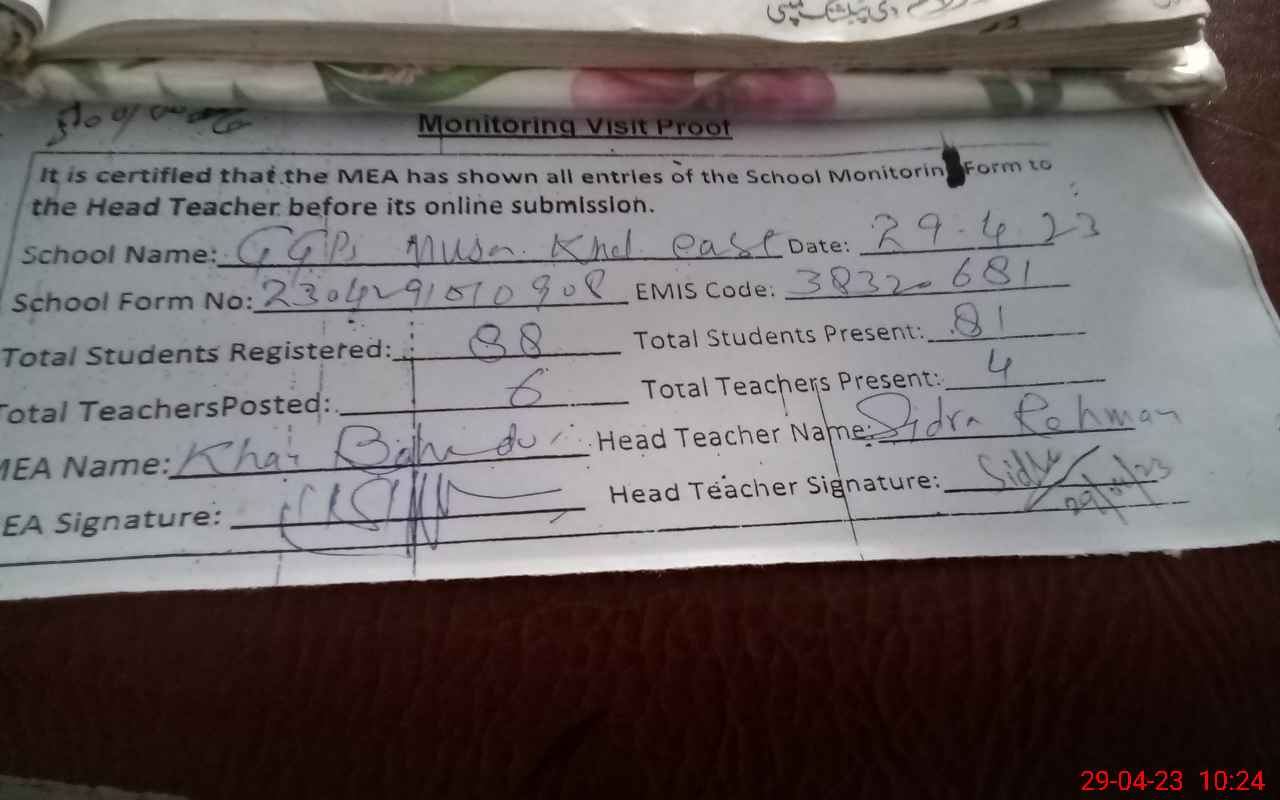 Monitoring Visit Proof
It is certified that the MEA has shown all entries of the School Monitorin Form to
the Head Teacher before its online submission.
School Name: GGPS Musa Khel east Date: 29.4.23
School Form No: 2304291010908 EMIS Code: 38320681
Total Students Registered: 88 Total Students Present: 81
Total TeachersPosted: 6 Total Teachers Present: 4
MEA Name: Khar Bahadur Head Teacher Name: Sidra Rehman
EA Signature: Head Teacher Signature: Sidra
29/04/23
29-04-23 10:24